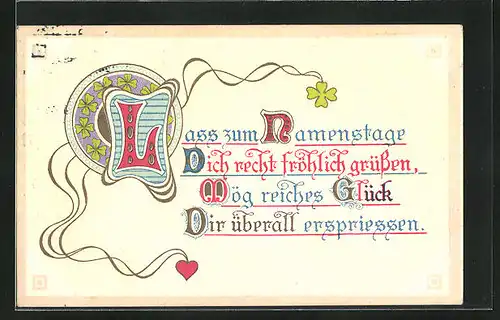 Lass zum Namenstage
Dich recht fröhlich grüßen,
Mög reiches Glück
Dir überall erspriessen.